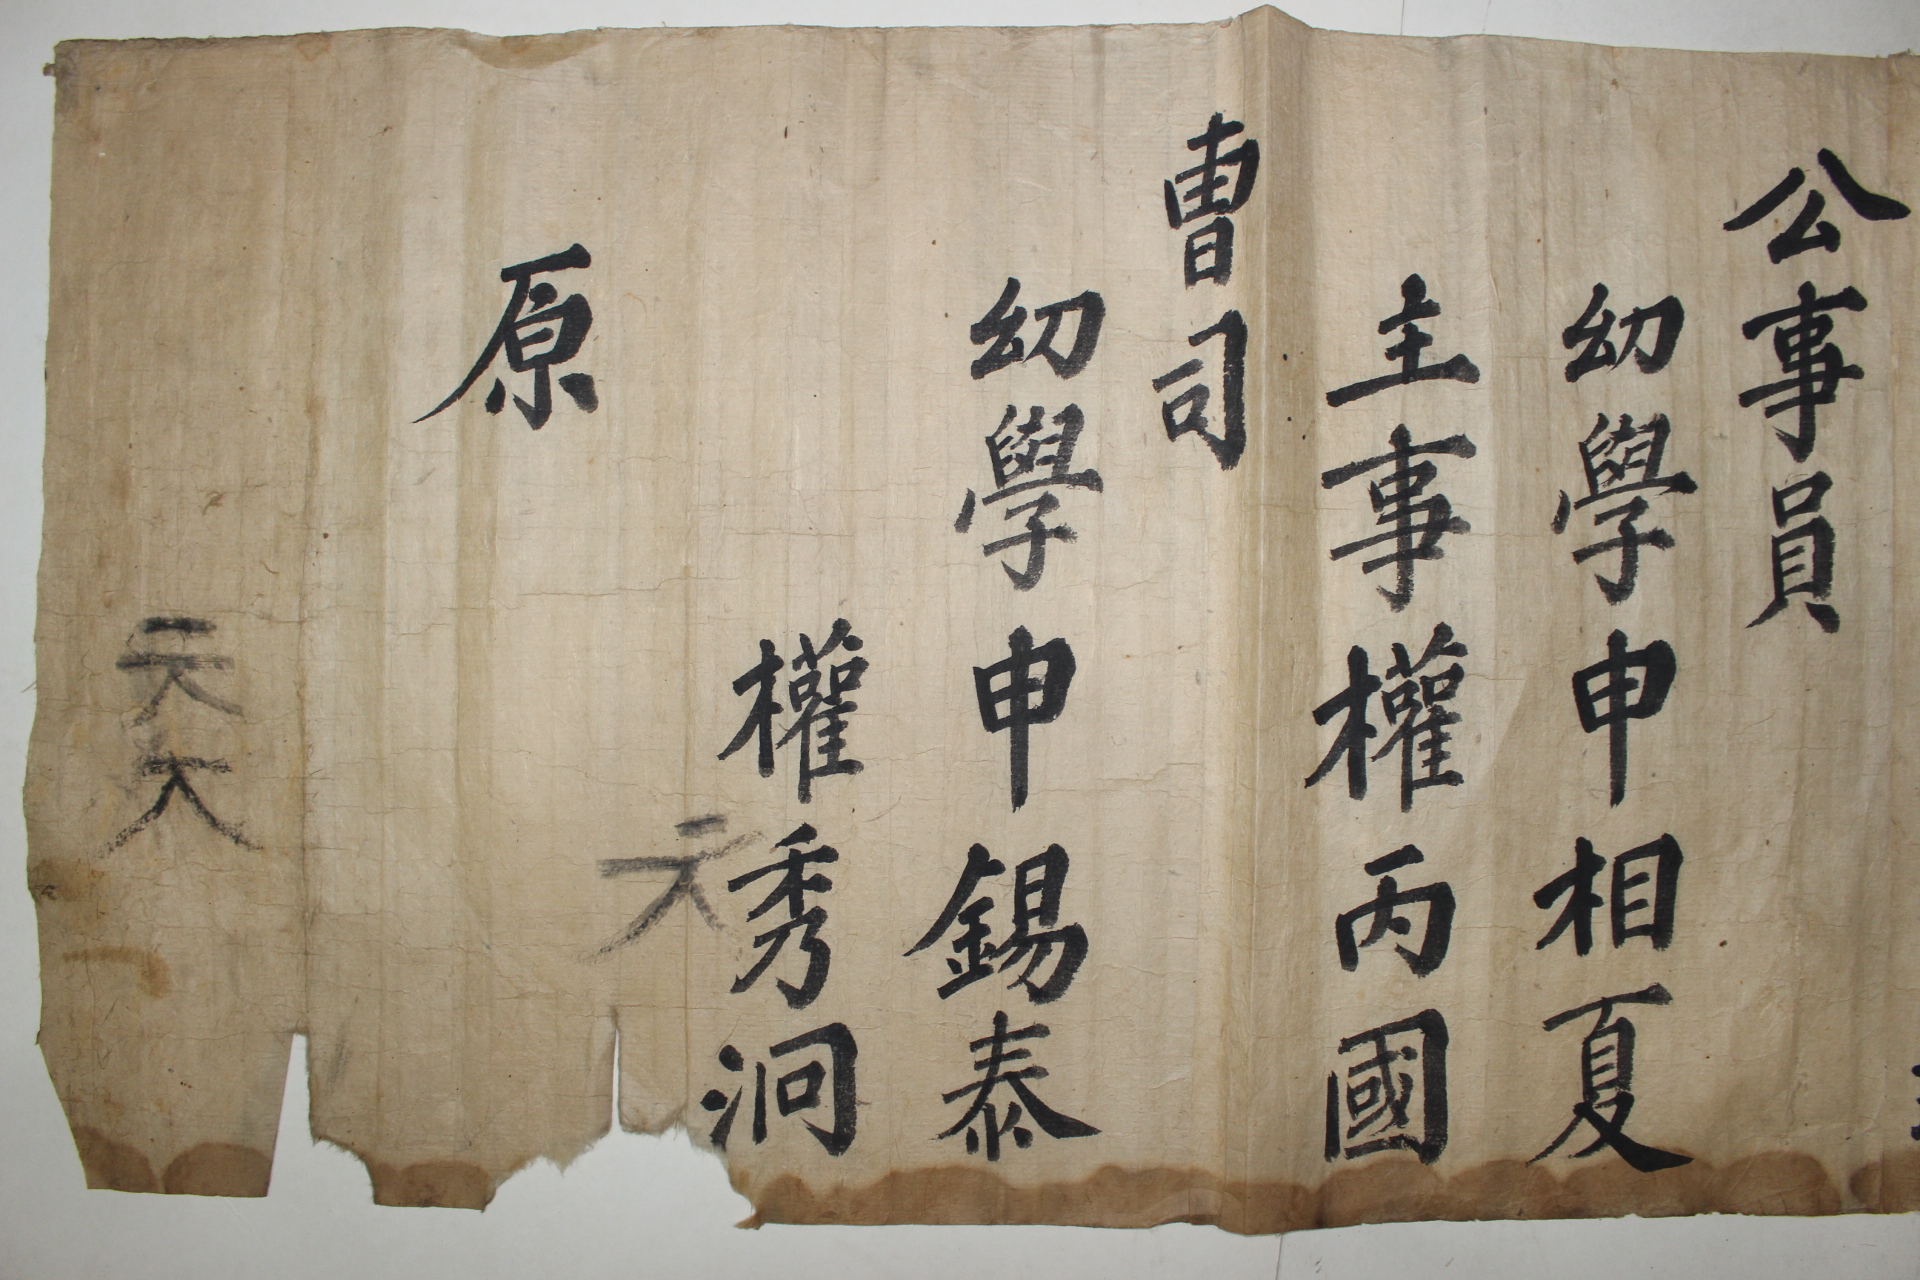 公事員
幼學申相夏
主事權丙國
曺司
幼學申錫泰
權秀泂
原
元
天大